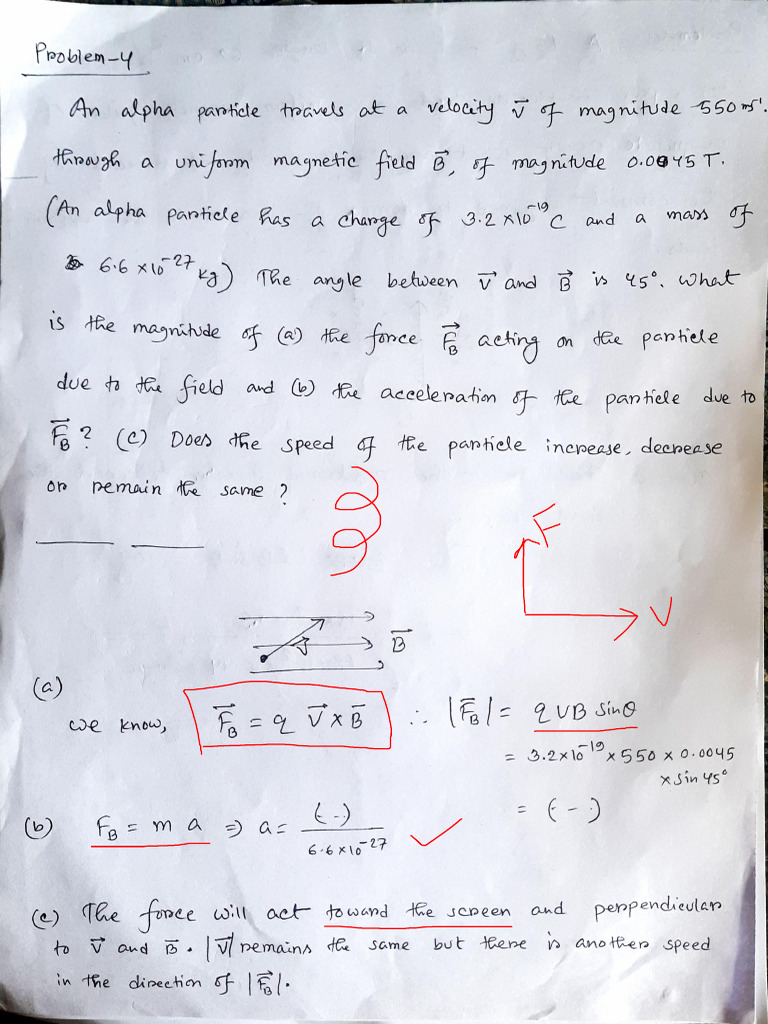 Problem-4
An alpha particle travels at a velocity v⃗ of magnitude 550 ms⁻¹.
through a uniform magnetic field B⃗, of magnitude 0.0045 T.
(An alpha particle has a charge of 3.2 × 10⁻¹⁹ C and a mass of
6.6 × 10⁻²⁷ kg) The angle between v⃗ and B⃗ is 45°. What
is the magnitude of (a) the force F⃗_B acting on the particle
due to the field and (b) the acceleration of the particle due to
F⃗_B? (c) Does the speed of the particle increase, decrease
or remain the same?
F
V
v⃗
B⃗
(a)
we know, F⃗_B = q v⃗ × B⃗ ∴ |F⃗_B| = qvB sinθ
= 3.2×10⁻¹⁹ × 550 × 0.0045
× sin 45°
= (- -)
(b) F_B = m a ⇒ a = (- -) / 6.6×10⁻²⁷
(c) The force will act toward the screen and perpendicular
to v⃗ and B⃗. |v⃗| remains the same but there is another speed
in the direction of |F⃗_B|.